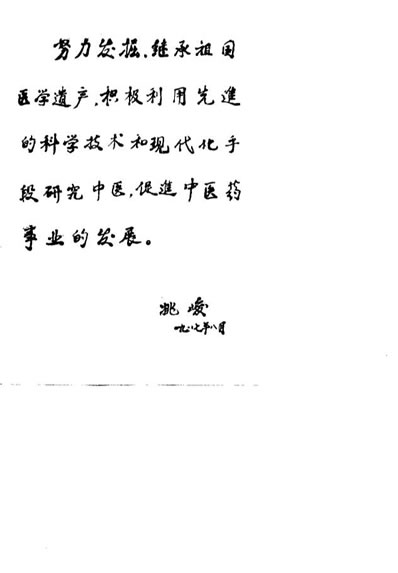 努力发掘、继承祖国
医学遗产，积极利用先進
的科学技术和现代化手
段研究中医，促進中医药
事业的发展。
姚峻
一九八七年八月